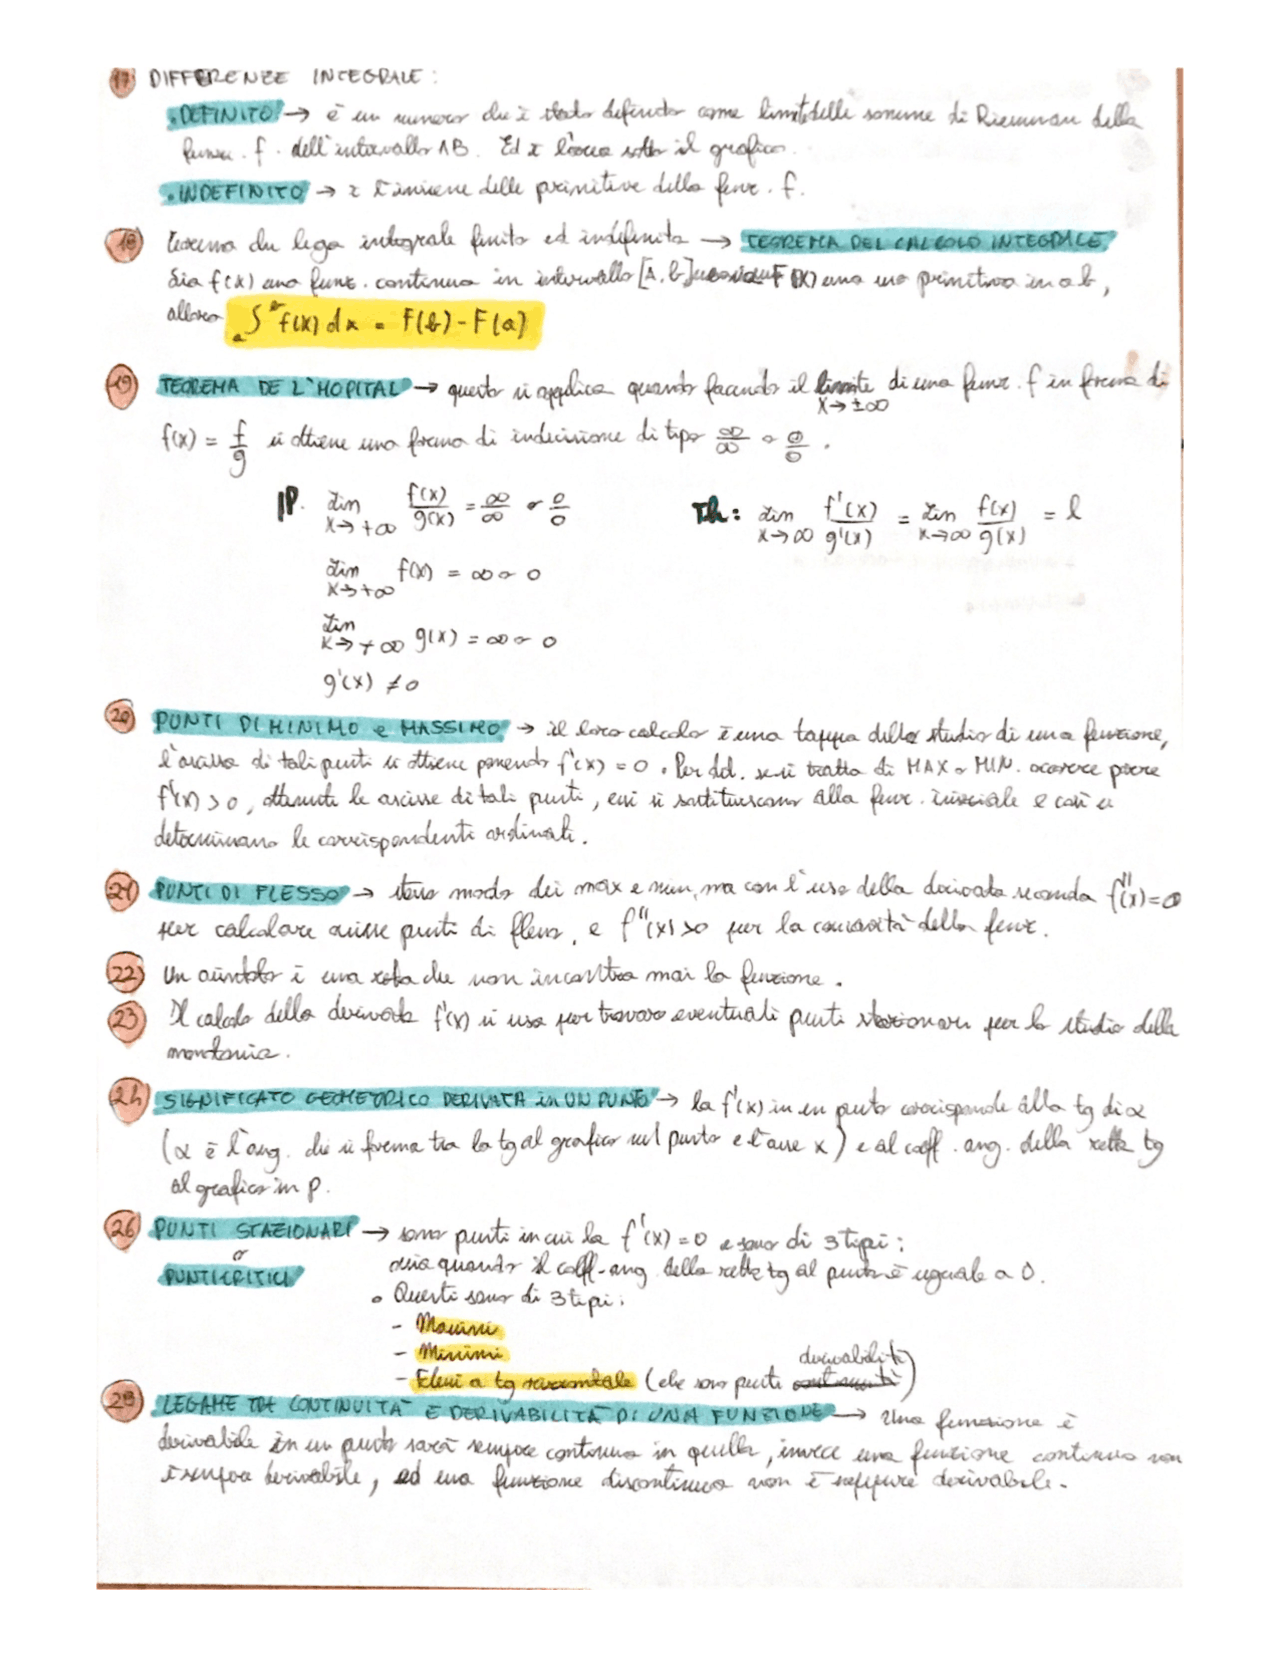 17 DIFFERENZE INTEGRALE:
. DEFINITO → è un numero che è stato definito come limite delle somme di Riemman della
funz. f. dell'intervallo AB. Ed è l'area sotto il grafico.
. INDEFINITO → è l'insieme delle primitive della funz. f.
18 teorema che lega integrale finito ed indefinito → TEOREMA DEL CALCOLO INTEGRALE
Sia f(x) una funz. continua in intervallo [A, b] F(x) una sua primitiva in a b,
allora ₐ∫ᵇ f(x) dx = F(b) - F(a)
19 TEOREMA DE L'HOPITAL → questo si applica quando facendo il limite di una funz. f in forma di
x→±∞
f(x) = f/g si ottiene una forma di indecisione di tipo ∞/∞ o 0/0.
IP. lim x→+∞ f(x)/g(x) = ∞/∞ o 0/0 Th: lim x→∞ f'(x)/g'(x) = lim x→∞ f(x)/g(x) = l
lim x→+∞ f(x) = ∞ o 0
lim x→+∞ g(x) = ∞ o 0
g'(x) ≠ 0
20 PUNTI DI MINIMO e MASSIMO → il loro calcolo è una tappa dello studio di una funzione,
l'ascissa di tali punti si ottiene ponendo f'(x) = 0. Per se si tratta di MAX o MIN. occorre porre
f'(x) > 0, ottenute le ascisse di tali punti, essi si sostituiscono alla funz. iniziale e così si
determinano le corrispondenti ordinati.
21 PUNTI DI FLESSO → stesso modo dei max e min, ma con l'uso della derivata seconda f''(x) = 0
per calcolare ascisse punti di flesso, e f''(x) > 0 per la concavità della funz.
22 Un asintoto è una retta che non incontra mai la funzione.
23 Il calcolo della derivata f'(x) si usa per trovare eventuali punti stazionari per lo studio della
monotonia.
24 SIGNIFICATO GEOMETRICO DERIVATA in UN PUNTO → la f'(x) in un punto corrisponde alla tg di α
(α è l'ang. che si forma tra la tg al grafico nel punto e l'asse x) e al coeff. ang. della retta tg
al grafico in p.
26 PUNTI STAZIONARI → sono punti in cui la f'(x) = 0 e sono di 3 tipi:
o
PUNTI CRITICI ossia quando il coeff. ang. della retta tg al punto è uguale a 0.
• Questi sono di 3 tipi:
- Massimi
- Minimi
- Flessi a tg orizzontale (che sono punti derivabilità)
28 LEGAME TRA CONTINUITÀ E DERIVABILITÀ DI UNA FUNZIONE → Una funzione è
derivabile in un punto sarà sempre continua in quello, invece una funzione continua non
è sempre derivabile, ed una funzione discontinua non è neppure derivabile.